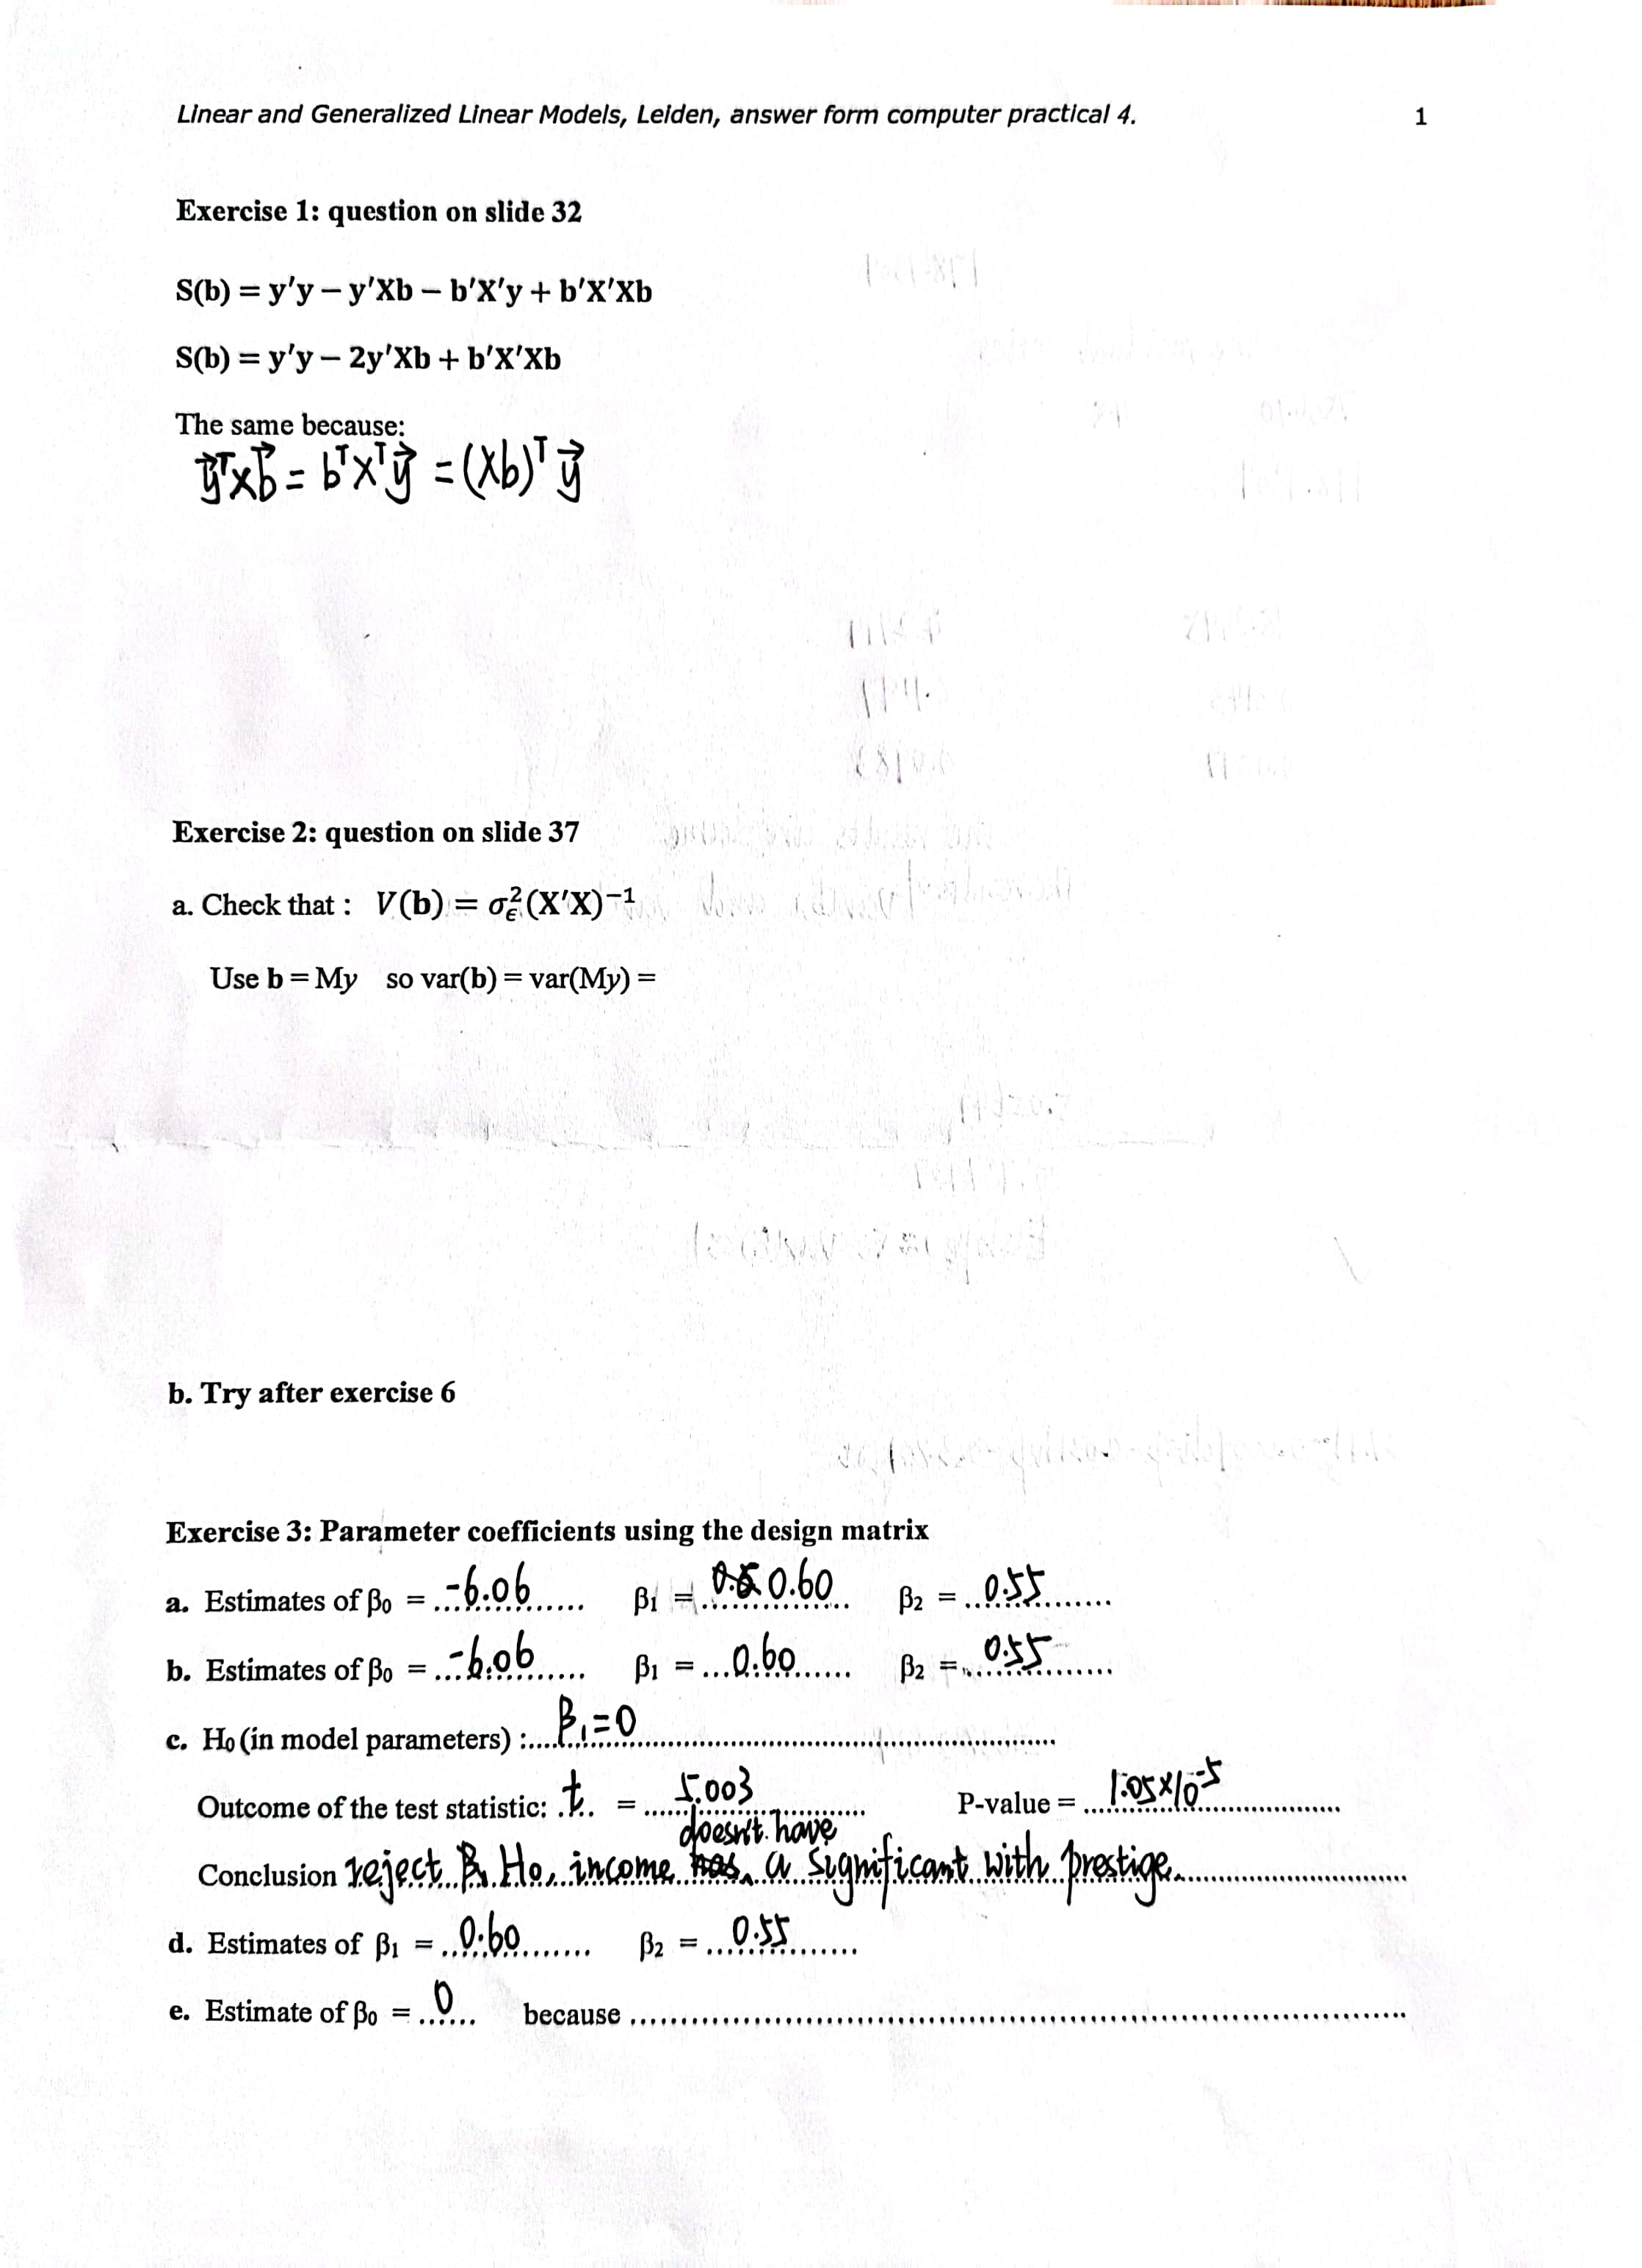 Linear and Generalized Linear Models, Leiden, answer form computer practical 4. 1
Exercise 1: question on slide 32
S(b) = y′y − y′Xb − b′X′y + b′X′Xb
S(b) = y′y − 2y′Xb + b′X′Xb
The same because:
y⃗ᵀXb⃗ = bᵀXᵀy⃗ = (Xb)ᵀ y⃗
Exercise 2: question on slide 37
a. Check that : V(b) = σ²ϵ(X′X)⁻¹
Use b = My so var(b) = var(My) =
b. Try after exercise 6
Exercise 3: Parameter coefficients using the design matrix
a. Estimates of β₀ = ...-6.06...... β₁ = ...0.60... β₂ = ...0.55.......
b. Estimates of β₀ = ...-6.06...... β₁ = ...0.60...... β₂ = ...0.55.......
c. H₀ (in model parameters) :....β₁=0..............................
Outcome of the test statistic: .t.. = ......5.003............ P-value = ....1.05×10⁻⁵..............
doesn't have
Conclusion reject H₀, income a significant with prestige..................
d. Estimates of β₁ = ..0.60....... β₂ = ...0.55.......
e. Estimate of β₀ = ..0.... because ............................................................